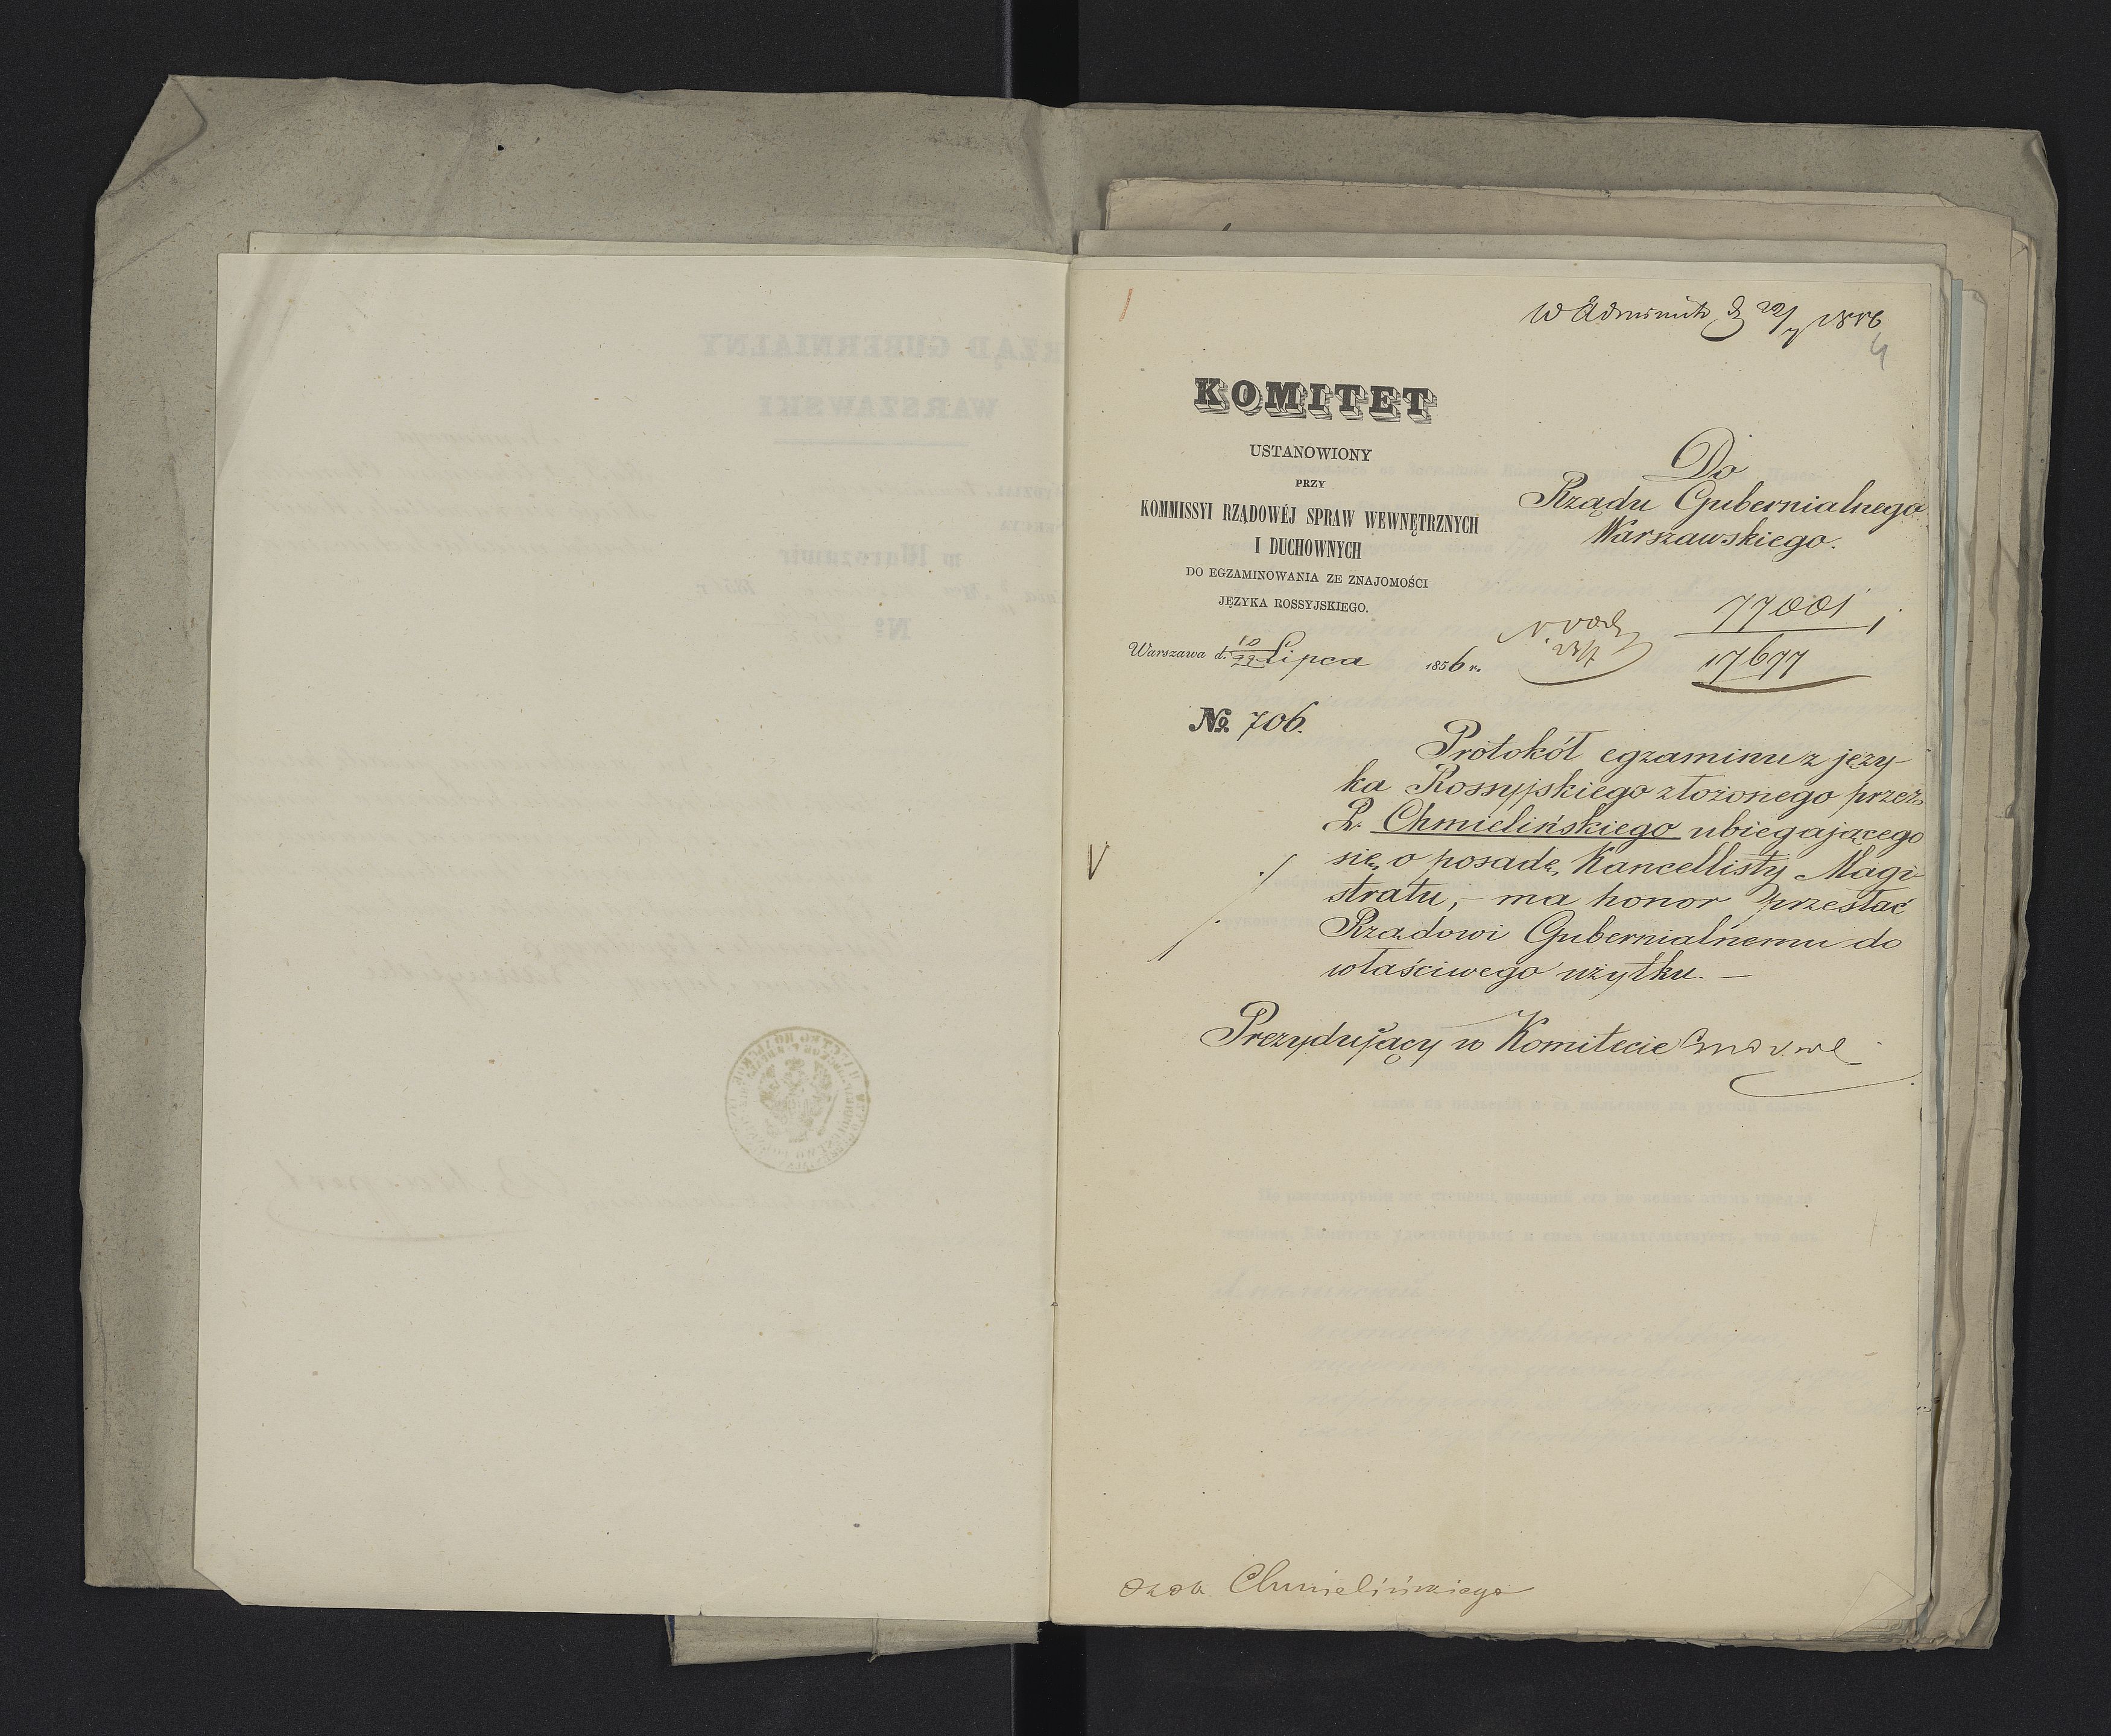 1856
4
KOMITET
USTANOWIONY
PRZY
KOMMISSYI RZĄDOWÉJ SPRAW WEWNĘTRZNYCH
I DUCHOWNYCH
DO EGZAMINOWANIA ZE ZNAJOMOŚCI
JĘZYKA ROSSYJSKIEGO.
Warszawa d. 10/22 Lipca 1856 r.
№ 706.
Do
Rządu Gubernialnego
Warszawskiego.
77001
17677
Protokół egzaminu z języ-
ka Rossyjskiego złożonego przez
P. Chmielińskiego ubiegającego
się o posadę Kancellisty Magi-
stratu, – ma honor przesłać
Rządowi Gubernialnemu do
właściwego użytku. –
Prezydujący w Komitecie
Chmielińskiego